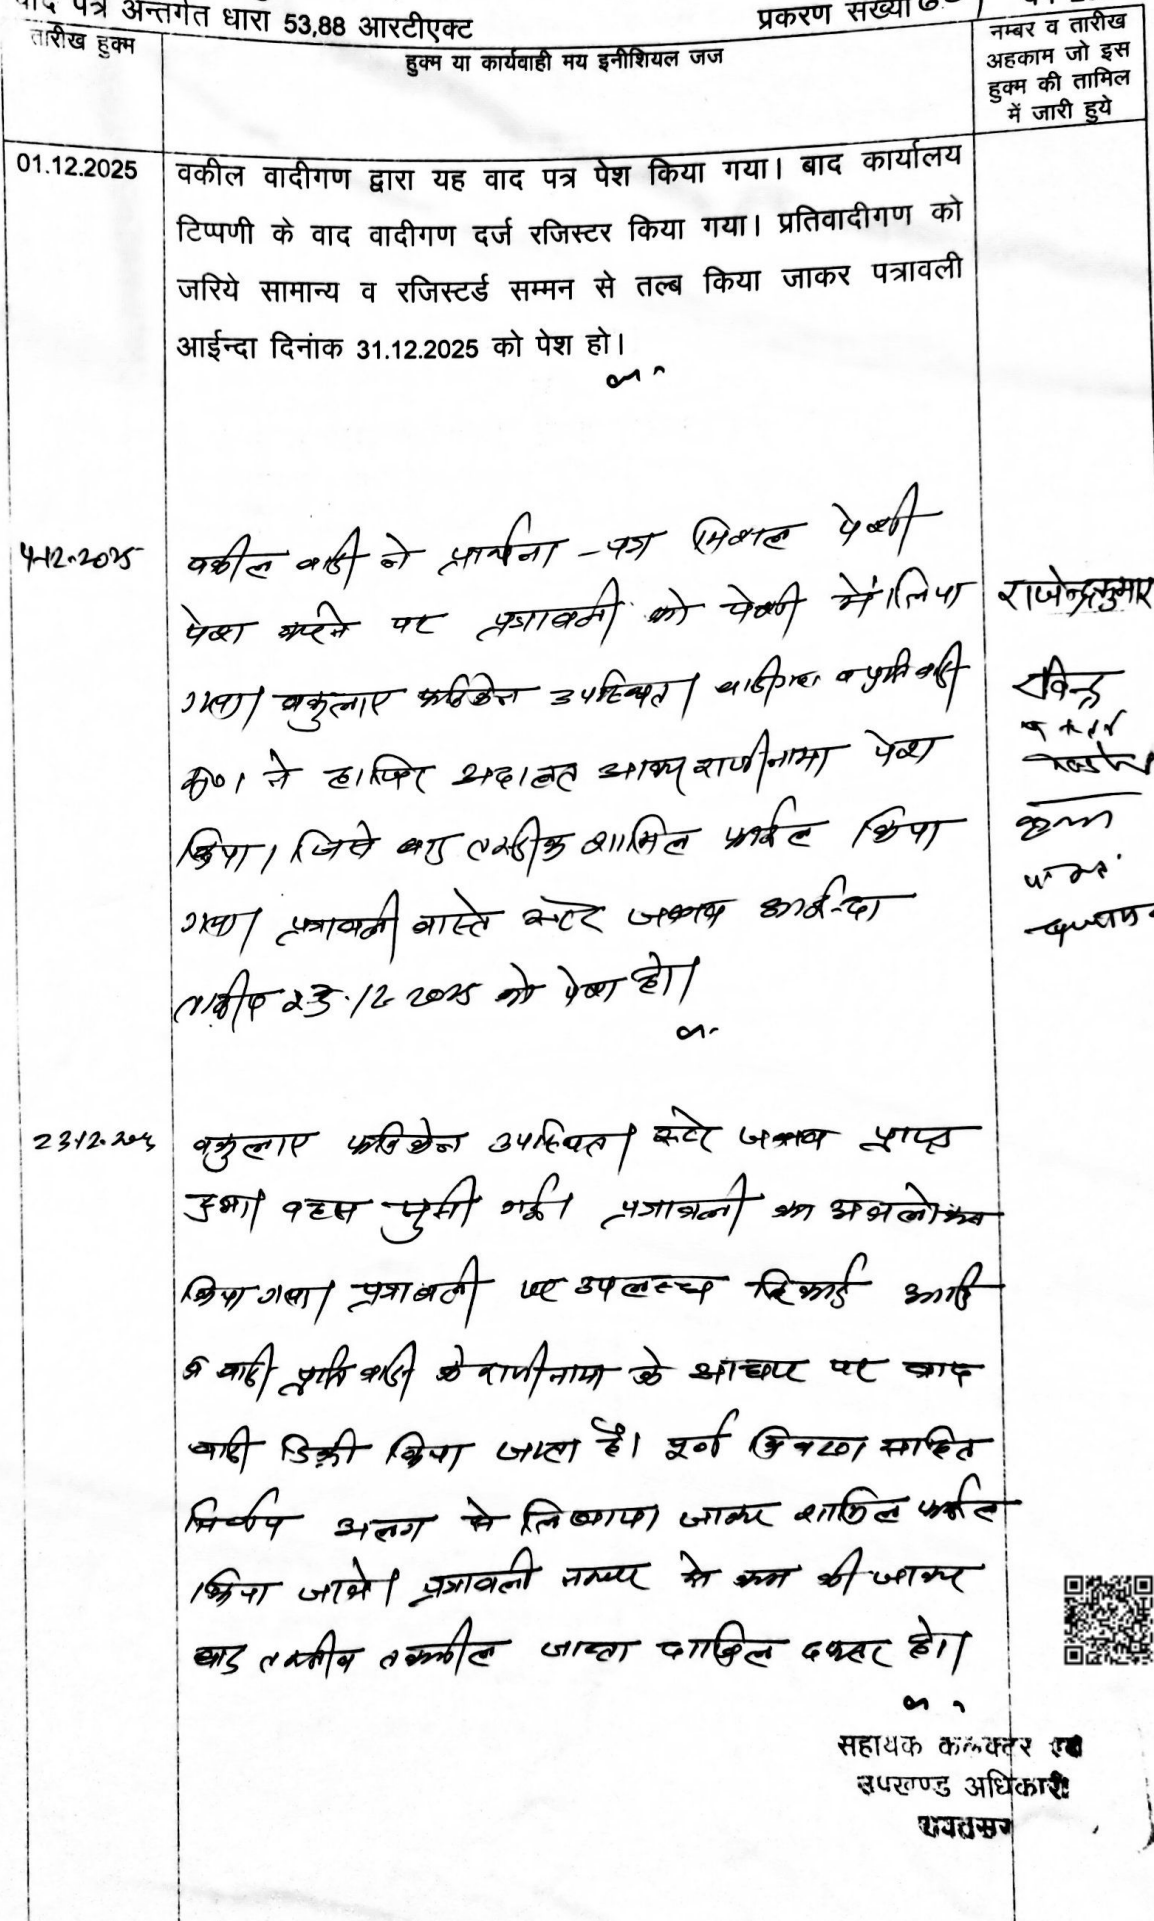 वाद पत्र अन्तर्गत धारा 53,88 आरटीएक्ट
प्रकरण संख्या
तारीख हुक्म
हुक्म या कार्यवाही मय इनीशियल जज
नम्बर व तारीख
अहकाम जो इस
हुक्म की तामिल
में जारी हुये
01.12.2025
वकील वादीगण द्वारा यह वाद पत्र पेश किया गया। बाद कार्यालय
टिप्पणी के वाद वादीगण दर्ज रजिस्टर किया गया। प्रतिवादीगण को
जरिये सामान्य व रजिस्टर्ड सम्मन से तल्ब किया जाकर पत्रावली
आईन्दा दिनांक 31.12.2025 को पेश हो।
4-12-2025
वकील वादी ने प्रार्थना-पत्र मिशल पेशी
पेश करने पर पत्रावली को पेशी में लिया
गया। वकुलाए फरिकेन उपस्थित। वादीगण व प्रतिवादी
ने हाजिर अदालत आकर राजीनामा पेश
किया। जिसे बाद तस्दीक शामिल फाईल किया
गया। पत्रावली वास्ते स्टेट जबाब आईन्दा
तारीख 23.12.2025 को पेश हो।
राजेन्द्रकुमार
रविन्द्र
23.12.2025
वकुलाए फरिकेन उपस्थित। स्टेट जबाब प्राप्त
हुआ। बहस सुनी गई। पत्रावली का अवलोकन
किया गया। पत्रावली पर उपलब्ध रिकार्ड आदि
व वादी प्रतिवादी के राजीनामा के आधार पर वाद
वादी डिक्री किया जाता है। पूर्ण विवरण सहित
निर्णय अलग से लिखाया जाकर शामिल फाईल
किया जावे। पत्रावली नम्बर से कम की जाकर
बाद तकमील जाब्ता दाखिल दफ्तर हो।
सहायक कलक्टर एवं
उपखण्ड अधिकारी